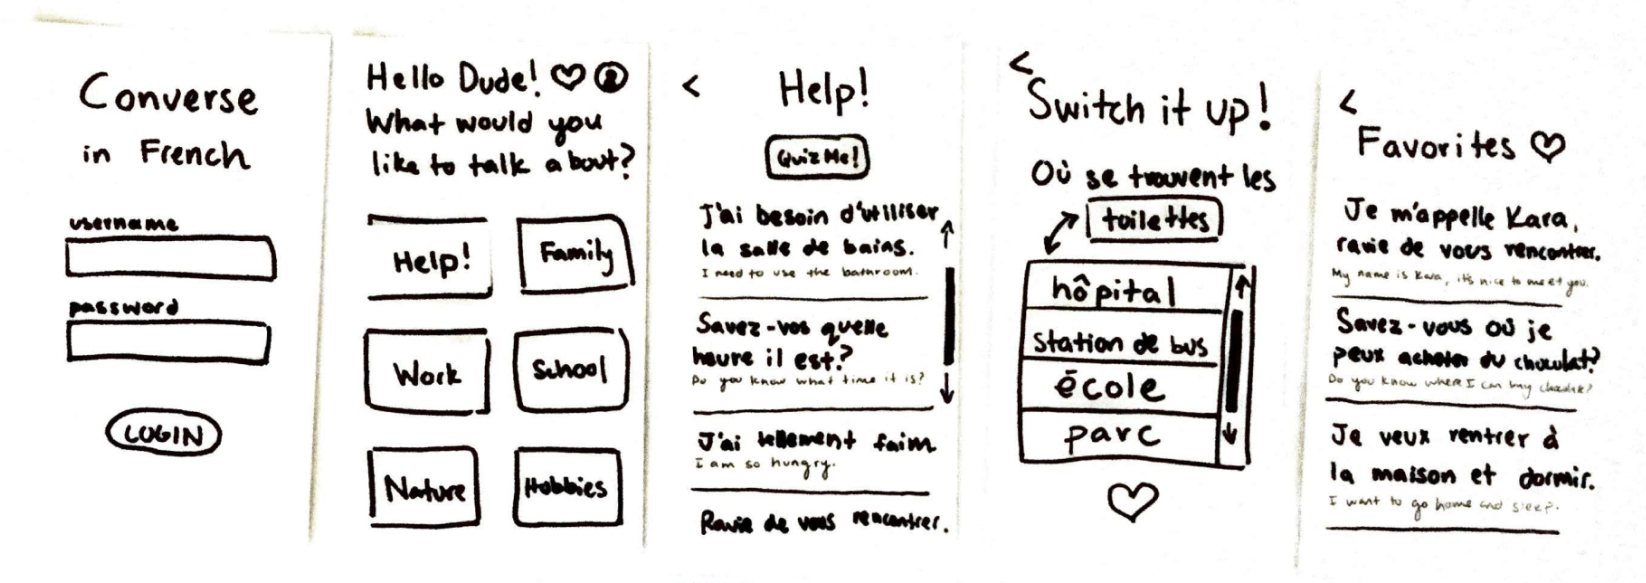 Converse
in French
username
password
LOGIN
Hello Dude!
What would you
like to talk about?
Help!
Family
Work
School
Nature
Hobbies
<
Help!
Quiz Me!
J'ai besoin d'utiliser
la salle de bains.
I need to use the bathroom.
Savez-vos quelle
heure il est?
Do you know what time it is?
J'ai tellement faim.
I am so hungry.
Ravie de vous rencontrer.
<
Switch it up!
Où se trouvent les
toilettes
hôpital
station de bus
école
parc
<
Favorites
Je m'appelle Kara,
ravie de vous rencontrer.
My name is Kara, it's nice to meet you.
Savez-vous où je
peux acheter du chocolat?
Do you know where I can buy chocolate?
Je veux rentrer à
la maison et dormir.
I want to go home and sleep.